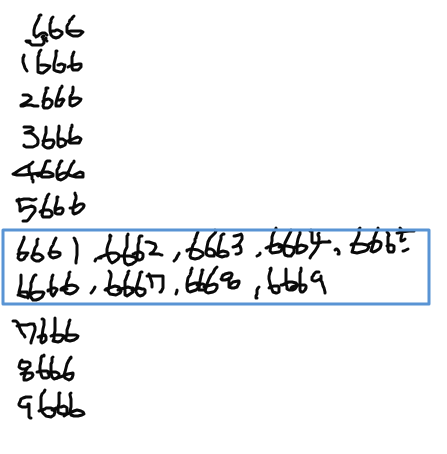 666
1666
2666
3666
4666
5666
6661, 6662, 6663, 6664, 6665
6666, 6667, 6668, 6669
7666
8666
9666